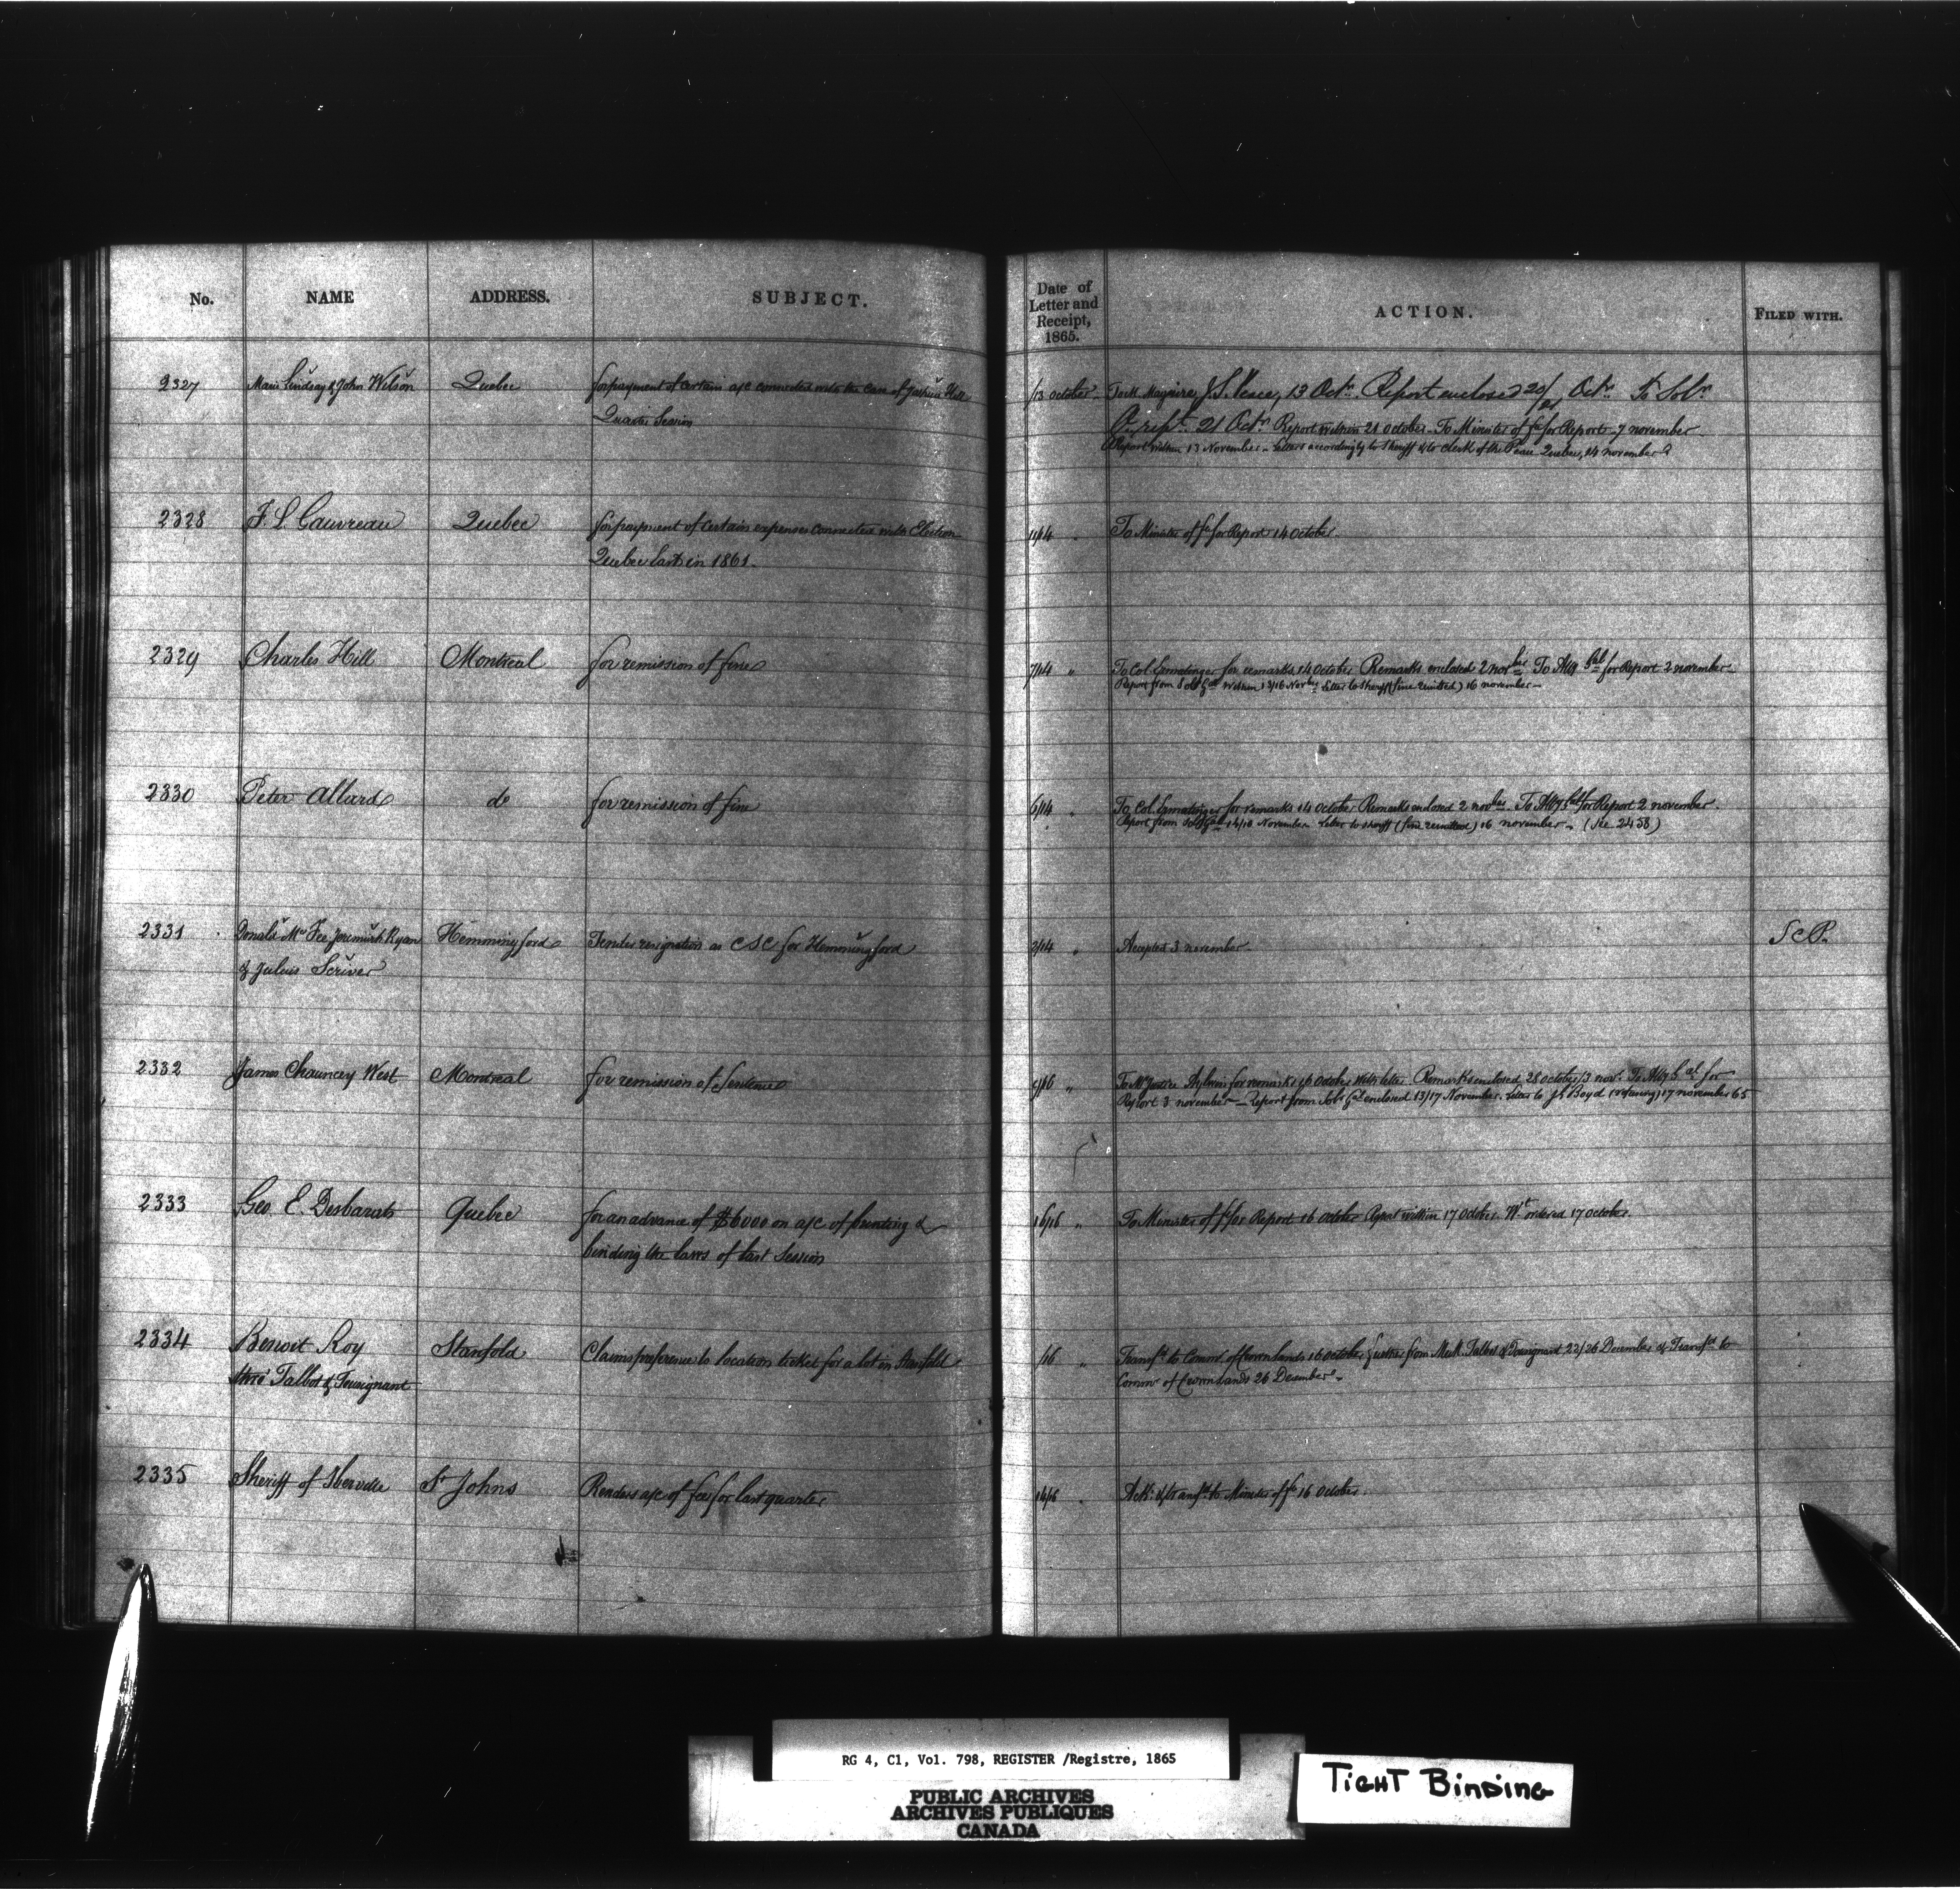 No. NAME ADDRESS. SUBJECT. Date of Letter and Receipt, 1865. ACTION. FILED WITH.
2327 Marie Lindsay & John Wilson Quebec for payment of certain a/c connected with the case of Hill /13 October To Maguire J.S. Peace, 13 Octr Report enclosed 20/21 Octr to Solr
Quarter Session 21 Octr Report within 28 October To Minister of fce for Report 7 november
Report within 13 November - Letters accordingly to Sheriff & to Clerk of the Peace Quebec, 14 november
2328 F. L. Gauvreau Quebec for payment of certain expenses connected with Election 11/14 " To Minister of fce for Report 14 October
Quebec East in 1861.
2329 Charles Hill Montreal for remission of fine 7/14 " To Col. Ermatinger for remarks 14 October Remarks enclosed 2 novber To Atty Gal for Report 2 november
Report from Solr Gal within 13/16 Novber Letter to Sheriff (fine remitted) 16 november -
2330 Peter Allard do for remission of fine 6/14 " To Col. Ermatinger for remarks 14 October Remarks enclosed 2 novber To Atty Gal for Report 2 november
Report from Solr Gal 14/16 November Letter to Sheriff (fine remitted) 16 november - (see 2458)
2331 Donald Mc Fee, Jeremiah Ryan Hemmingford Tender resignation as CSC for Hemmingford 2/14 " Accepted 3 november S C P.
& Julius Scriver
2332 James Chauncey West Montreal for remission of Sentence 9/16 " To Mr Justice Aylwin for remarks 16 October with letter. Remarks enclosed 28 October/3 nov. To Atty Gal for
Report 3 november - Report from Solr Gal enclosed 13/17 November. Letter to Boyd (refusing) 17 november 65
2333 Geo. E. Desbarats Quebec for an advance of $6000 on a/c of printing & 16/16 " To Minister of fce for Report 16 October Report within 17 October. Wt ordered 17 October.
binding the laws of last Session
2334 Benoit Roy Stanfold Claims preference to location ticket for a lot in Stanfold /16 " Transfd to Commr of Crown Lands 16 October further from Mess. Talbot & Tousignant 22/26 December & Transfd to
thro' Talbot & Tousignant Commr of Crown Lands 26 December -
2335 Sheriff of Iberville St Johns Renders a/c of fees for last quarter 14/16 " Ack: & transfd to Minister of fce 16 October.
RG 4, C1, Vol. 798, REGISTER /Registre, 1865
PUBLIC ARCHIVES
ARCHIVES PUBLIQUES
CANADA
TIGHT BINDING